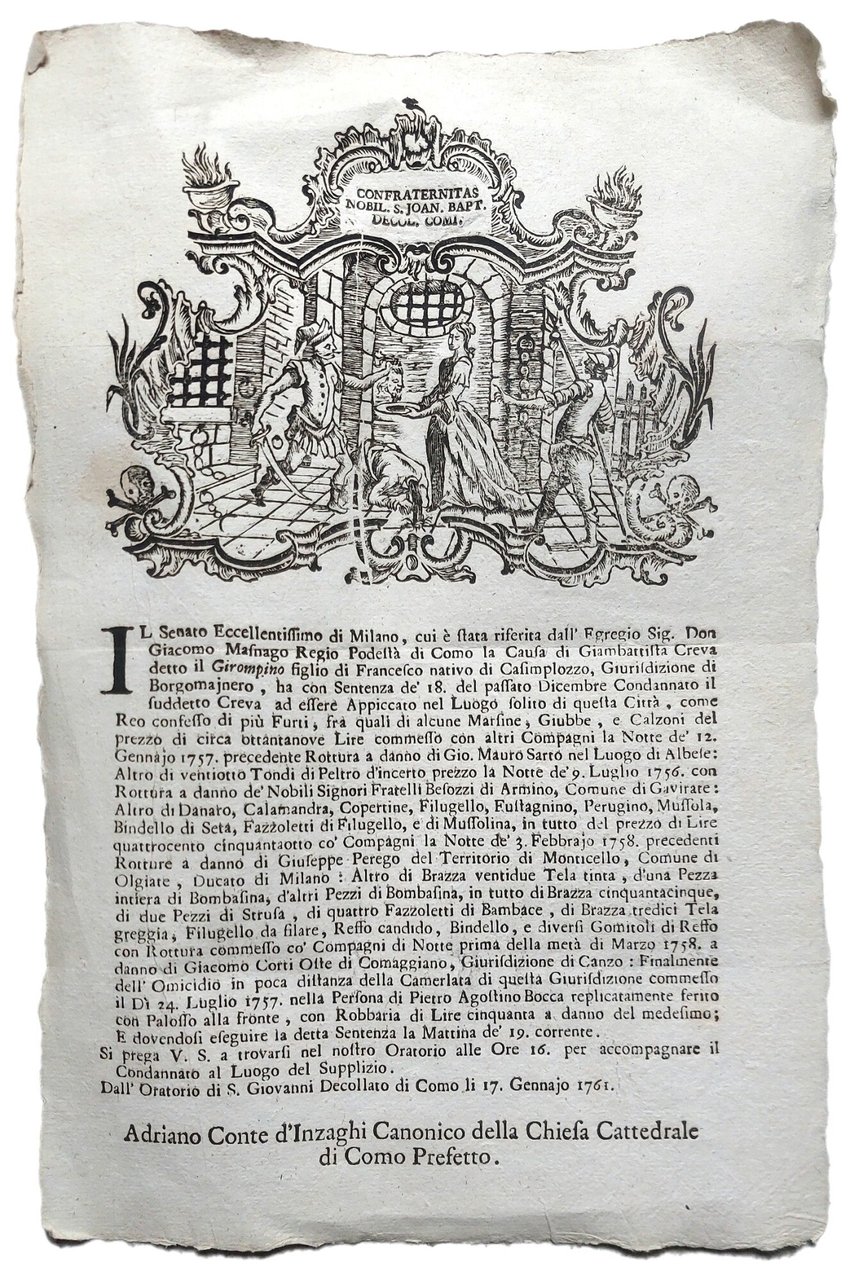 CONFRATERNITAS
NOBIL. S. JOAN. BAPT.
DECOL. COMI.
IL Senato Eccellentiſſimo di Milano, cui è ſtata riferita dall' Egregio Sig. Don
Giacomo Maſnago Regio Podeſtà di Como la Cauſa di Giambattiſta Creva
detto il Girompino figlio di Franceſco nativo di Caſimplozzo, Giuriſdizione di
Borgomajnero, ha con Sentenza de' 18. del paſſato Dicembre Condannato il
ſuddetto Creva ad eſſere Appiccato nel Luogo ſolito di queſta Città, come
Reo confeſſo di più Furti, frà quali di alcune Marſine, Giubbe, e Calzoni del
prezzo di circa ottantanove Lire commeſſo con altri Compagni la Notte de' 12.
Gennajo 1757. precedente Rottura a danno di Gio. Mauro Sarto nel Luogo di Albeſe:
Altro di ventiotto Tondi di Peltro d'incerto prezzo la Notte de' 9. Luglio 1756. con
Rottura a danno de' Nobili Signori Fratelli Beſozzi di Armino, Comune di Gavirate:
Altro di Danaro, Calamandra, Copertine, Filugello, Fuſtagnino, Perugino, Muſſola,
Bindello di Seta, Fazzoletti di Filugello, e di Muſſolina, in tutto del prezzo di Lire
quattrocento cinquantaotto co' Compagni la Notte de' 3. Febbrajo 1758. precedenti
Rotture a danno di Giuſeppe Perego del Territorio di Monticello, Comune di
Olgiate, Ducato di Milano: Altro di Brazza ventidue Tela tinta, d'una Pezza
intiera di Bombaſina, d'altri Pezzi di Bombaſina, in tutto di Brazza cinquantacinque,
di due Pezzi di Struſa, di quattro Fazzoletti di Bambace, di Brazza tredici Tela
greggia, Filugello da filare, Reffo candido, Bindello, e diverſi Gomitoli di Reffo
con Rottura commeſſo co' Compagni di Notte prima della metà di Marzo 1758. a
danno di Giacomo Corti Oſte di Comaggiano, Giuriſdizione di Canzo: Finalmente
dell' Omicidio in poca diſtanza della Camerlata di queſta Giuriſdizione commeſſo
il Dì 24. Luglio 1757. nella Perſona di Pietro Agoſtino Bocca replicatamente ferito
con Paloſſo alla fronte, con Robbaria di Lire cinquanta a danno del medeſimo;
E dovendoſi eſeguire la detta Sentenza la Mattina de' 19. corrente.
Si prega V. S. a trovarſi nel noſtro Oratorio alle Ore 16. per accompagnare il
Condannato al Luogo del Supplizio.
Dall' Oratorio di S. Giovanni Decollato di Como li 17. Gennajo 1761.
Adriano Conte d'Inzaghi Canonico della Chieſa Cattedrale
di Como Prefetto.